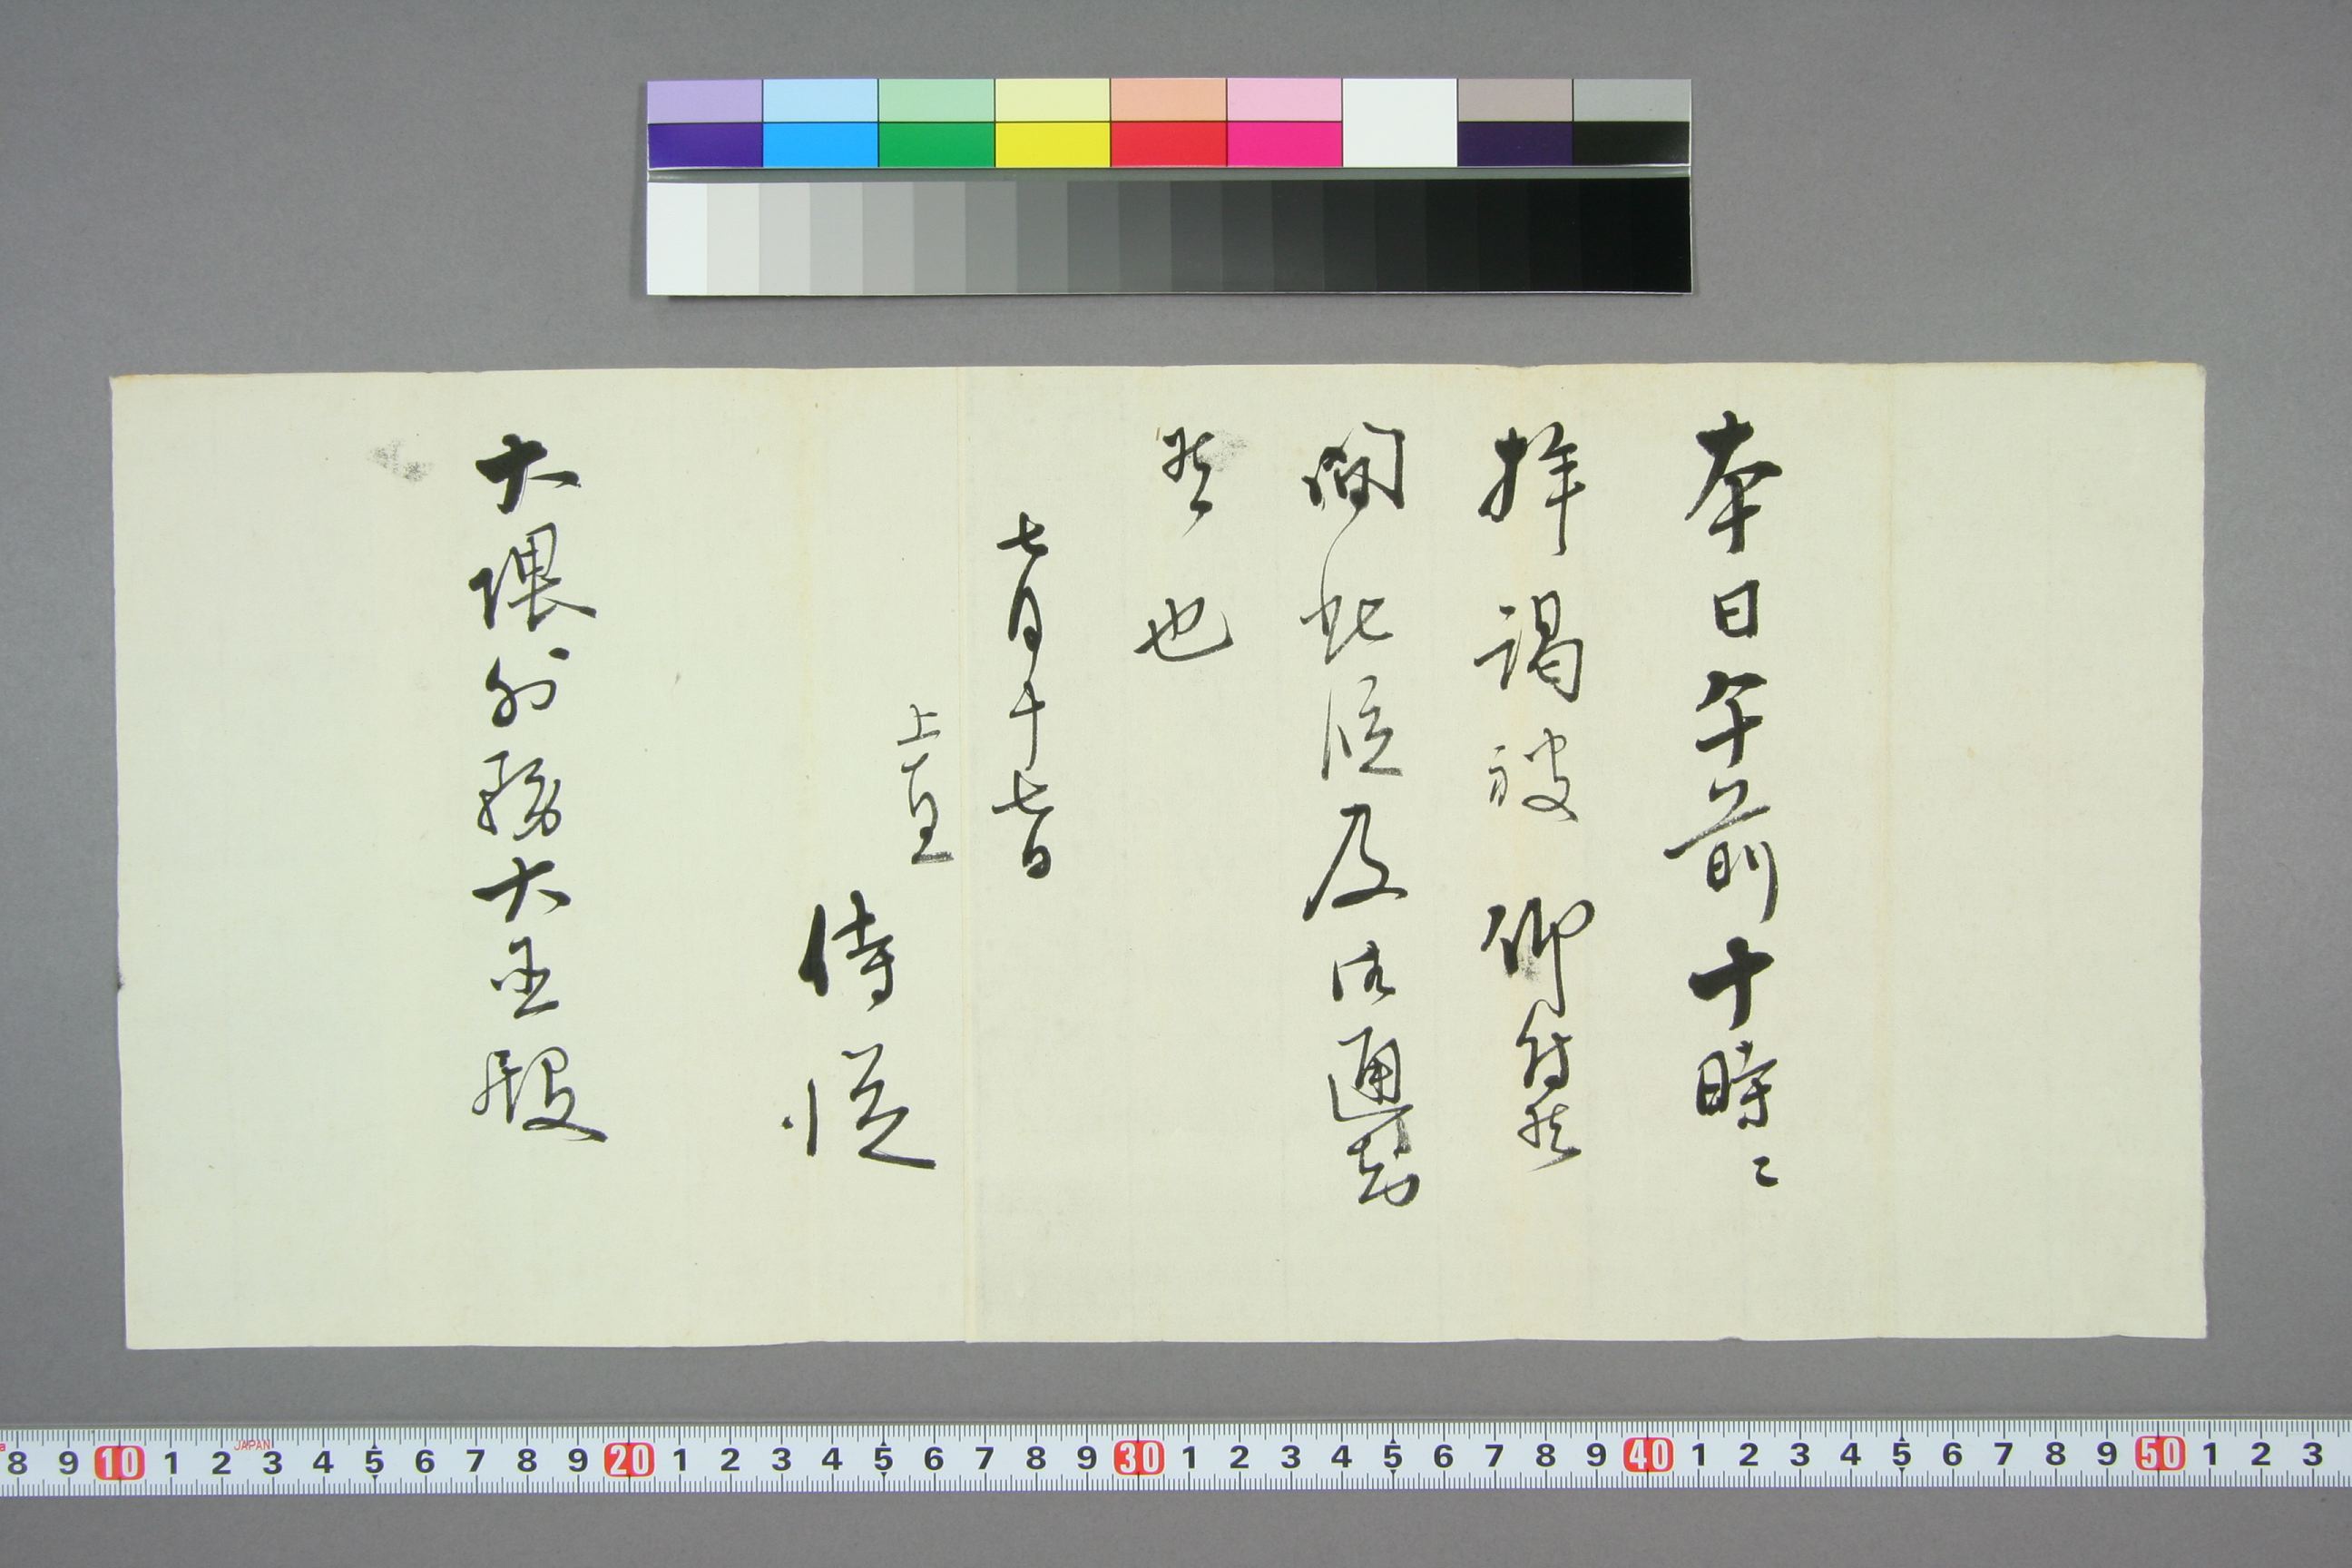 本日午前十時ニ
拝謁被 仰付候
間此段及御通知
候也
七月十七日
上直
侍従
大隈外務大臣殿
8 9 10 1 2 3 4 5 6 7 8 9 20 1 2 3 4 5 6 7 8 9 30 1 2 3 4 5 6 7 8 9 40 1 2 3 4 5 6 7 8 9 50 1 2 3
JAPAN